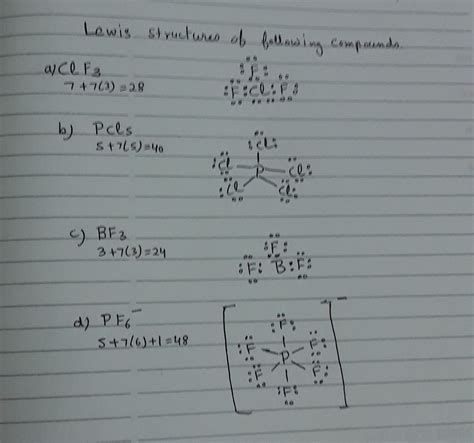 Lewis structures of following compounds.
a) ClF3
7+7(3)=28
F
F Cl F
b) PCl5
5+7(5)=40
Cl
Cl P Cl
Cl Cl
c) BF3
3+7(3)=24
F
F B F
d) PF6⁻
5+7(6)+1=48
F
F F
P
F F
F